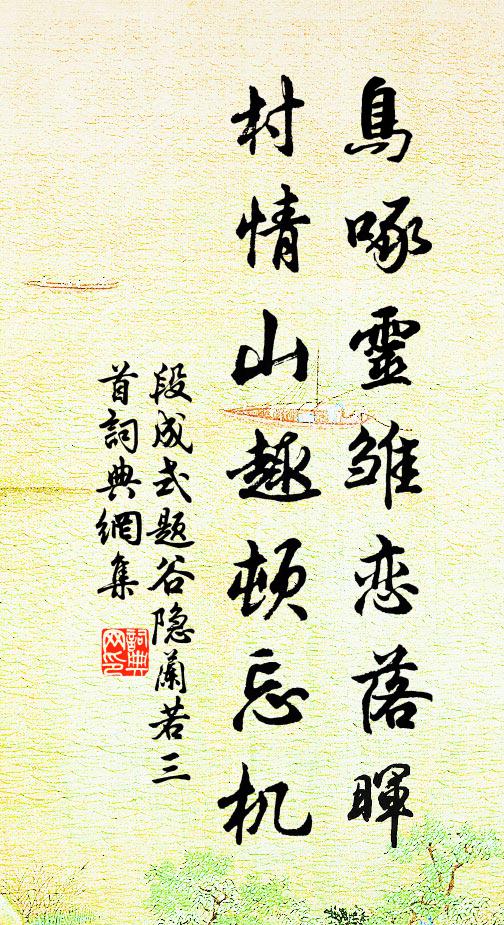 鳥啄靈雛恋落暉
村情山趣頓忘机
段成式题谷隐蘭若三
首詞典網集
詞典
网印